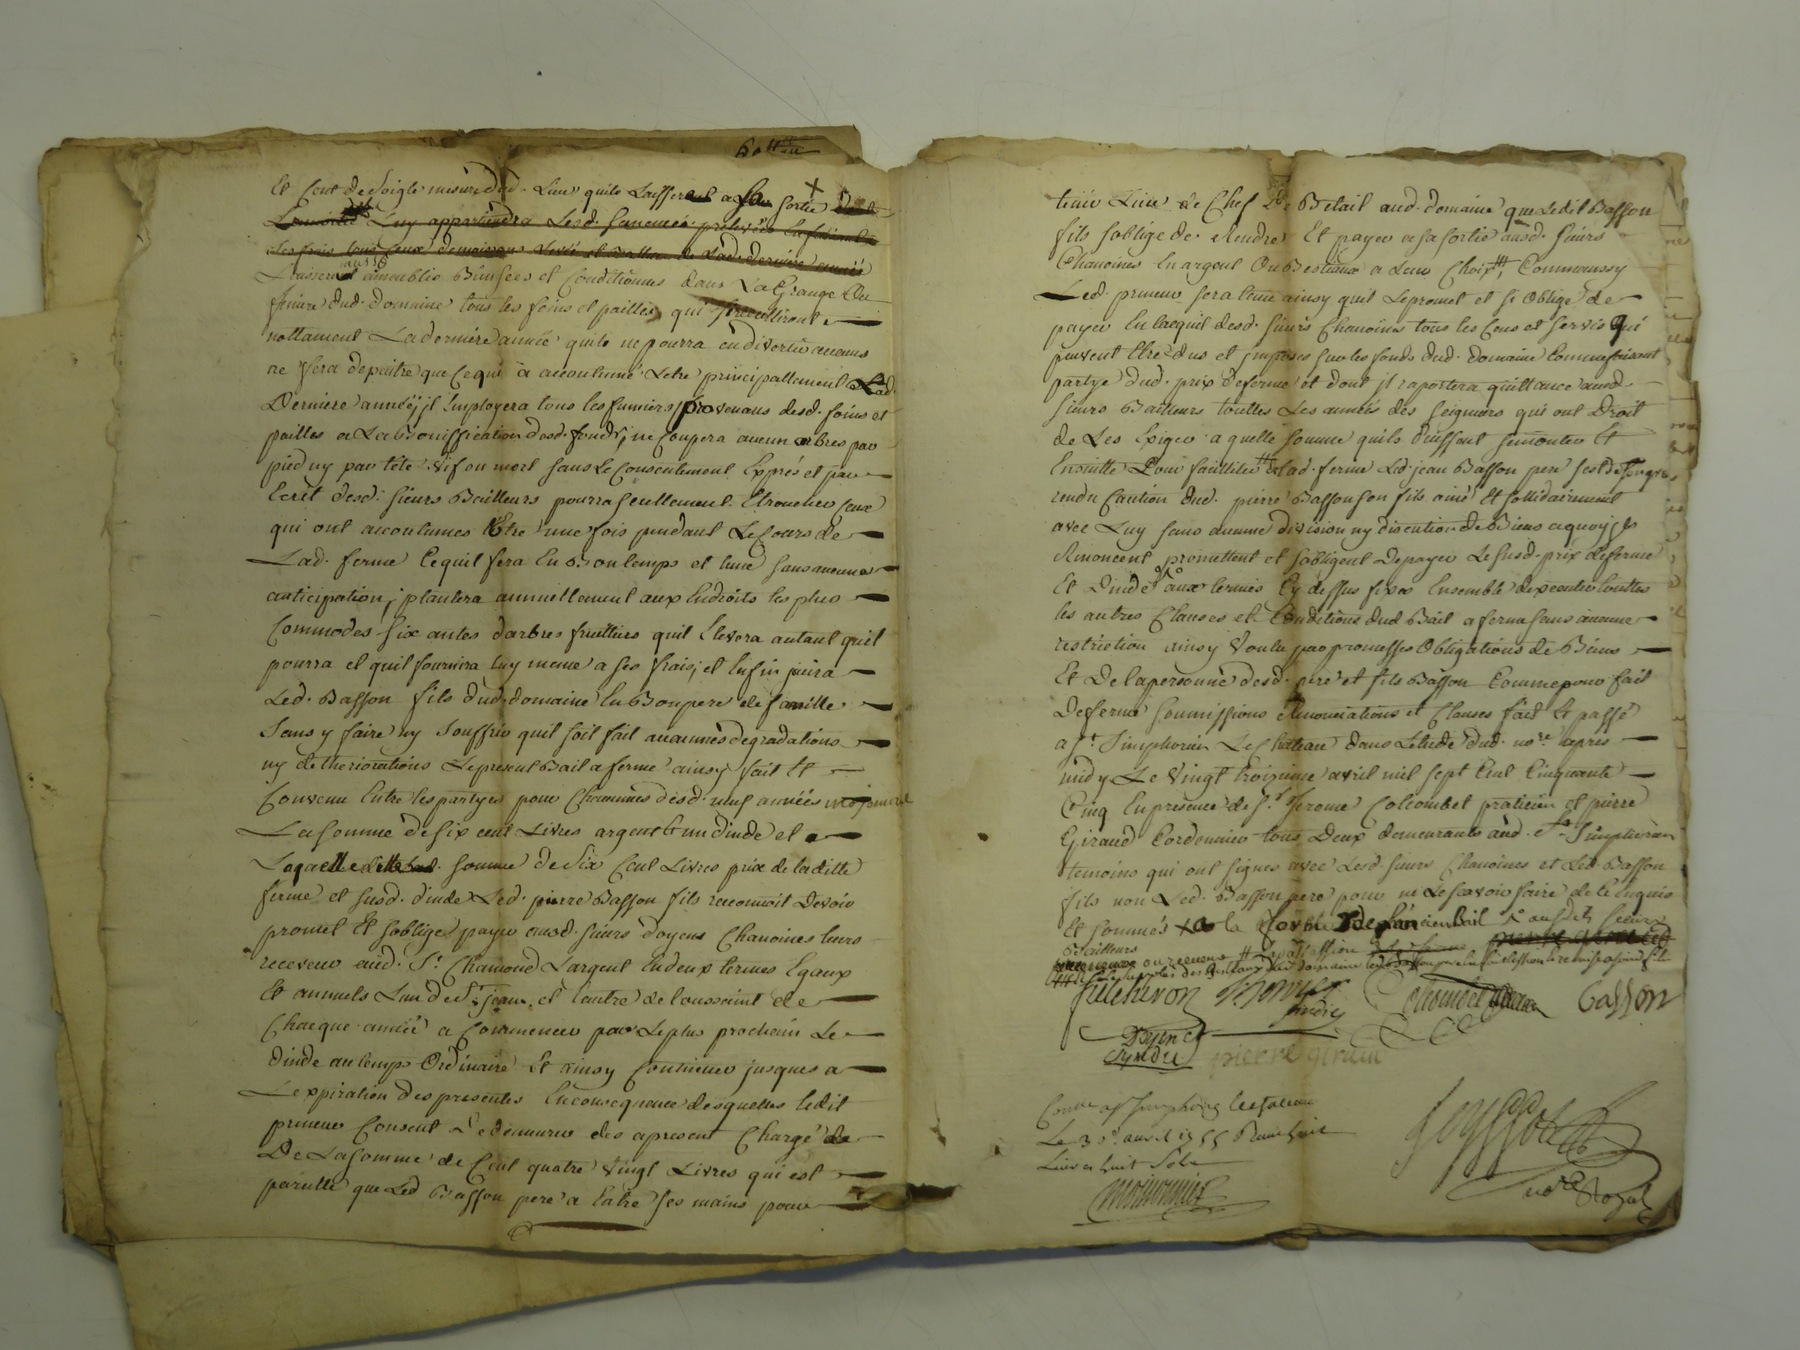 Et cent de Seigle mesure dud. Lieu quils Laisseront a sa sortie
Luy appartiendra Lesd. semences prélevées
des frais
Laisseront aussy amoublie Bien sées et Conditionnés dans La Grange Ou
feniere dud. Domaine tous les foins et pailles qui sy recuilliront
nottament La derniere année quils ne pourra en divertir aucuns
ne fera depaitre que Ce qui a accoutumé Letre principallement Lad.
Derniere année, jl Employera tous les fumiers provenans desd. foins et
pailles a La Bonniffication desd. fonds, ne Coupera aucun arbres par
pied ny par tête vif ou mort sans Le Consentement Exprés et par
Ecrit desd. Sieurs Bailleurs pourra seullement Etroncher Ceux
qui ont accoutumés L'Etre une fois pendant Le Cours de
Lad. ferme Ce quil fera En Bon temps et Lune sans aucune
anticipation, plantera annuellement aux Endroits les plus
Commodes six antes d'arbres fruitiers quil Elevera autant quil
pourra et quil fournira Luy meme a ses frais, et Enfin jouira
Led. Basson fils dud. domaine En Bon pere de famille
Sans y faire ny Souffrir quil soit fait aucunnes degradations
ny detheriorations Le present Bail a ferme ainsy fait Et
Convenu Entre les partyes pour Chacunnes desd. neuf années
La somme de six cent Livres argent & un dinde et
Laquelle somme de Six Cent Livres prix de laditte
ferme et susd. dinde Led. pierre Basson fils reconnoit Devoir
promet Et soblige payer ausd. sieurs doyens Chanoines leurs
receveur aud. St. Chamond L'argent En deux termes Egaux
Et annuels L'un de St. jean, et l'autre de toussaint de
Chacque année a Commencer par Le plus prochain Le
dinde au temps Ordinaire Et ainsy Continuer jusques a
L'expiration des presentes En consequence desquelles Ledit
preneur Consent De demeurer des apresent Chargé de
De La somme de Cent quatre vingt Livres qui est
pareille que Led Basson pere a Entre ses mains pour
tenir Lieu de Chef De Betail aud. domaine que Ledit Basson
fils soblige de Rendre Et payer a sa sortie ausd. Sieurs
Chanoines En argent Ou Bestiaux a Leur Choix, Comm'aussy
Led. preneur sera tenu ainsy quil Le promet et si Oblige de
payer En l'acquit desd. sieurs Chanoines tous les Cens et servis qui
peuvent Etre dus et jmposés sur les fonds dud. domaine Comme faisant
partye dud. prix de ferme et dont jl raportera quittance ausd.
sieurs Bailleurs toutes Les années des seigneurs qui ont Droit
de Les Exiger a quelle somme quils puissent se monter Et
Ensuitte Pour faciliter Lad. ferme Led. jean Basson pere sest de son gré
rendu Caution dud. pierre Basson son fils ainé Et sollidairement
avec Luy sans aucune division ny discution de Biens a quoy jls
Renoncent promettent et sobligent De payer Le susd. prix de ferme
Et Dinde aux termes Cy dessus fixés Ensemble d'executer touttes
les autres Clauses et Conditions dud Bail a ferme sans aucune
restriction ainsy Voulu par promesses Obligations de Biens
Et De la personne desd. pere et fils Basson Comme pour fait
De ferme soumissions Renonciations et Clauses fait Et passé
a St. Simphorien Le Chateau dans L'etude dud. nore. apres
midy Le Vingt troizieme avril mil sept Cent Cinquante
Cinq En presence de Sr. Jerome Colcombet praticien et pierre
Giraud Cordonnier tous Deux demeurants aud. St. Simphorien
temoins qui ont signés avec Lesd. sieurs Chanoines et Led. Basson
fils non Led. Basson pere pour ne Le scavoir faire de ce Enquis
Et sommés
Bailleurs
Basson
pierre giraud
Le 3e. avril 1755
Livres huit Sols
nore. Royal